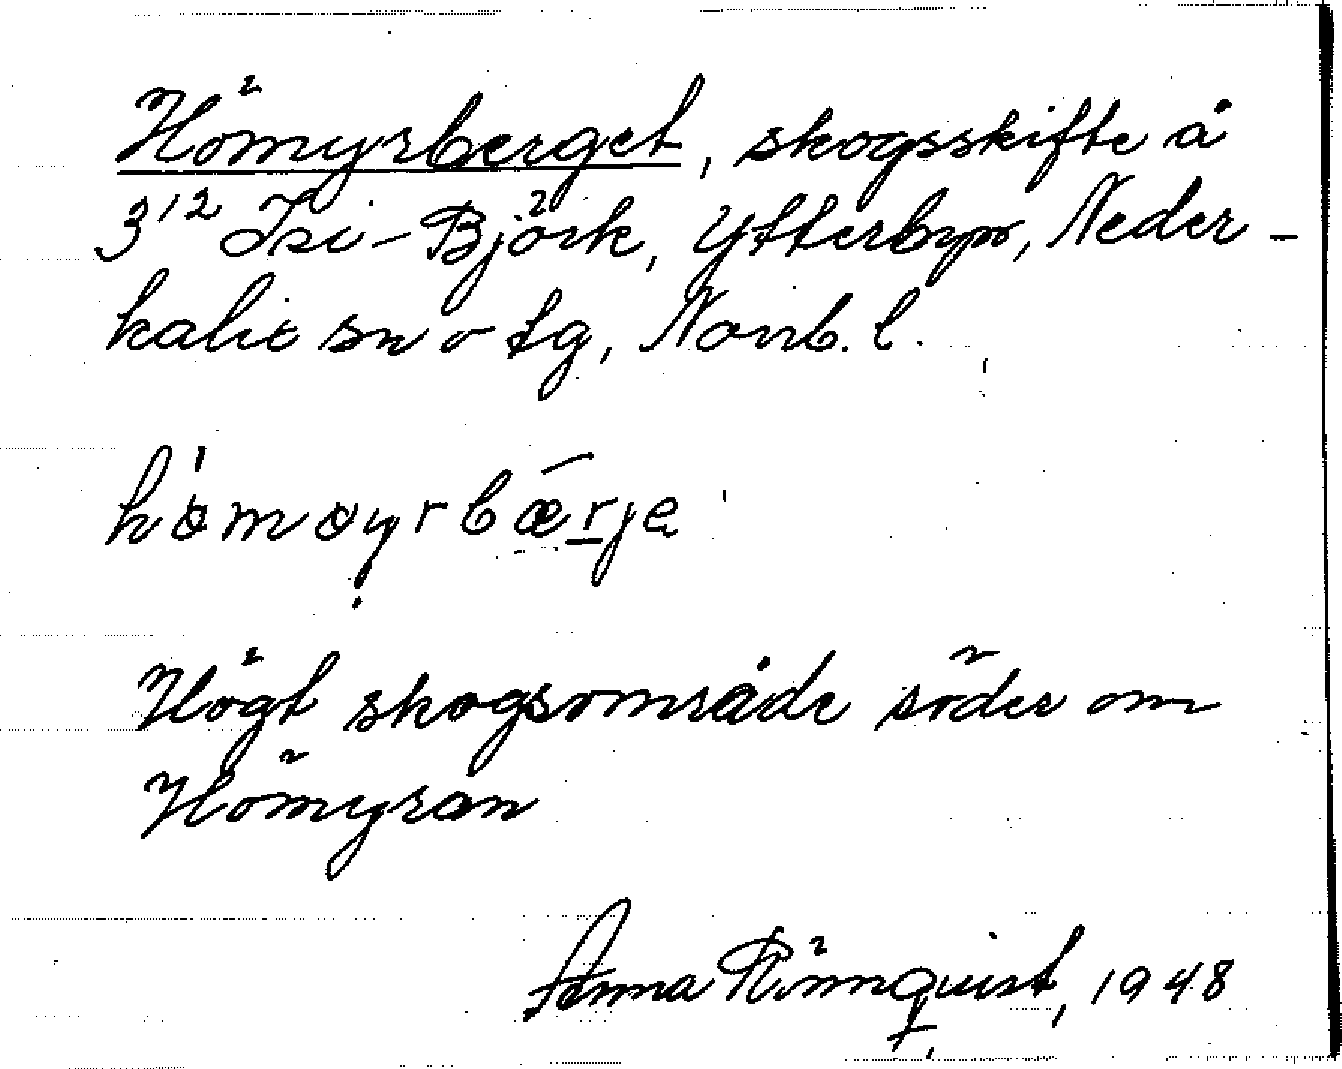 Hömyrberget, skogsskifte å
3¹² Isi-Björk, Ytterbyn, Neder-
kalix sn o tg, Norrb. l.
hömøyrbærje
Högt skogsområde söder om
Hömyran
Anna Rönnquist, 1948